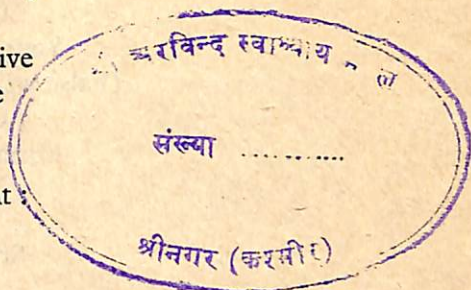 ive
अरविन्द स्वाध्याय
e
संख्या ...........
t :
श्रीनगर (कश्मीर)